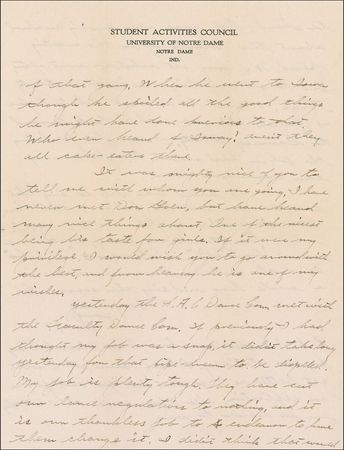 STUDENT ACTIVITIES COUNCIL
UNIVERSITY OF NOTRE DAME
NOTRE DAME
IND.
of that gang. When he went to Iowa
though he spoiled all the good things
he might have done previous to that.
Who ever heard of Iowa? aren't they
all cake-eaters there.
It was mighty nice of you to
tell me with whom you are going. I have
never met Don, but have heard
many nice things about, one of the nicest
being his taste for girls. If it was my
privilege, I would wish you to go around with
the best, and from hearsay he is one of my
wishes.
Yesterday the S.A.C. Dance Com. met with
the Faculty Dance Com. If previously I had
thought my job was a snap, it didn't take long
yesterday for that to be dispelled.
My job is plenty tough. They have cut
our dance regulations to nothing, and it
is our thankless job to endeavor to have
them change it. I didn't think that would